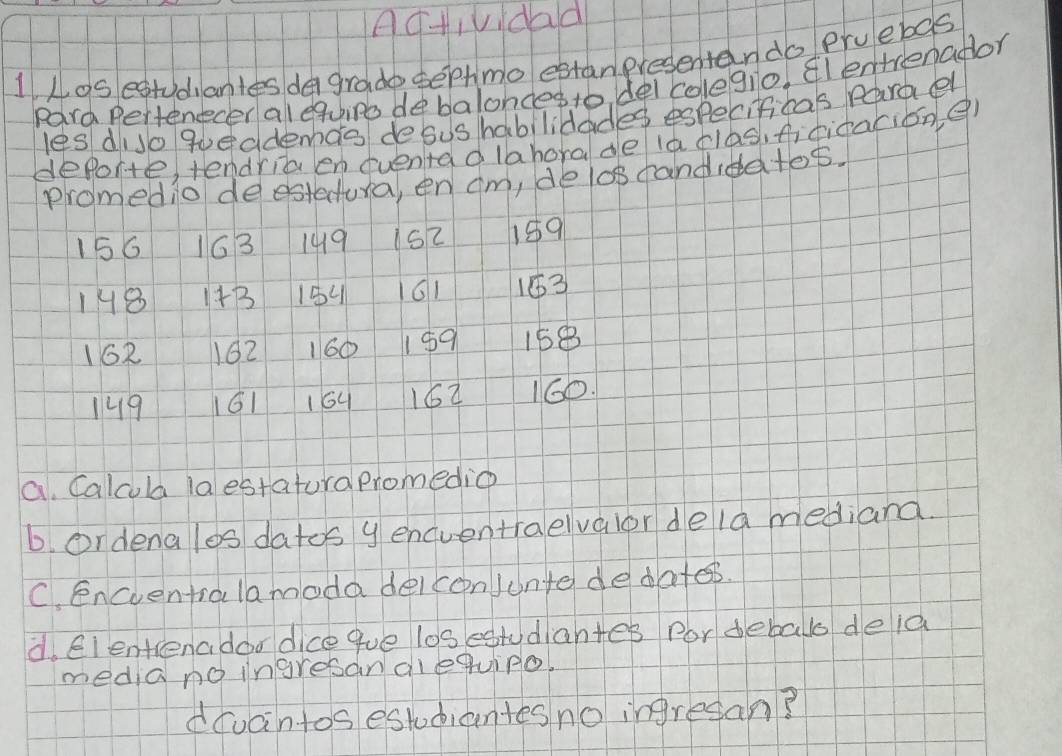 Actividad
1 Los estudiantes de grado séptimo estan presentando pruebas
para pertenecer al equipo de baloncesto, del colegio. El entrenador
les dijo que ademas de sus habilidades especificas para el
deporte, tendria en cuenta a la hora de la clasificicacion, el
promedio de estatura, en cm, de los candidatos.
156 163 149 152 159
148 173 154 161 163
162 162 160 159 158
149 161 164 162 160.
a. Calcula la estatura promedio
b. ordena los datos y encuentra el valor de la mediana.
c. Encuentra la moda del conjunto de datos.
d. El entrenador dice que los estudiantes por debajo de la
media no ingresan al equipo.
dcuantos estudiantes no ingresan?